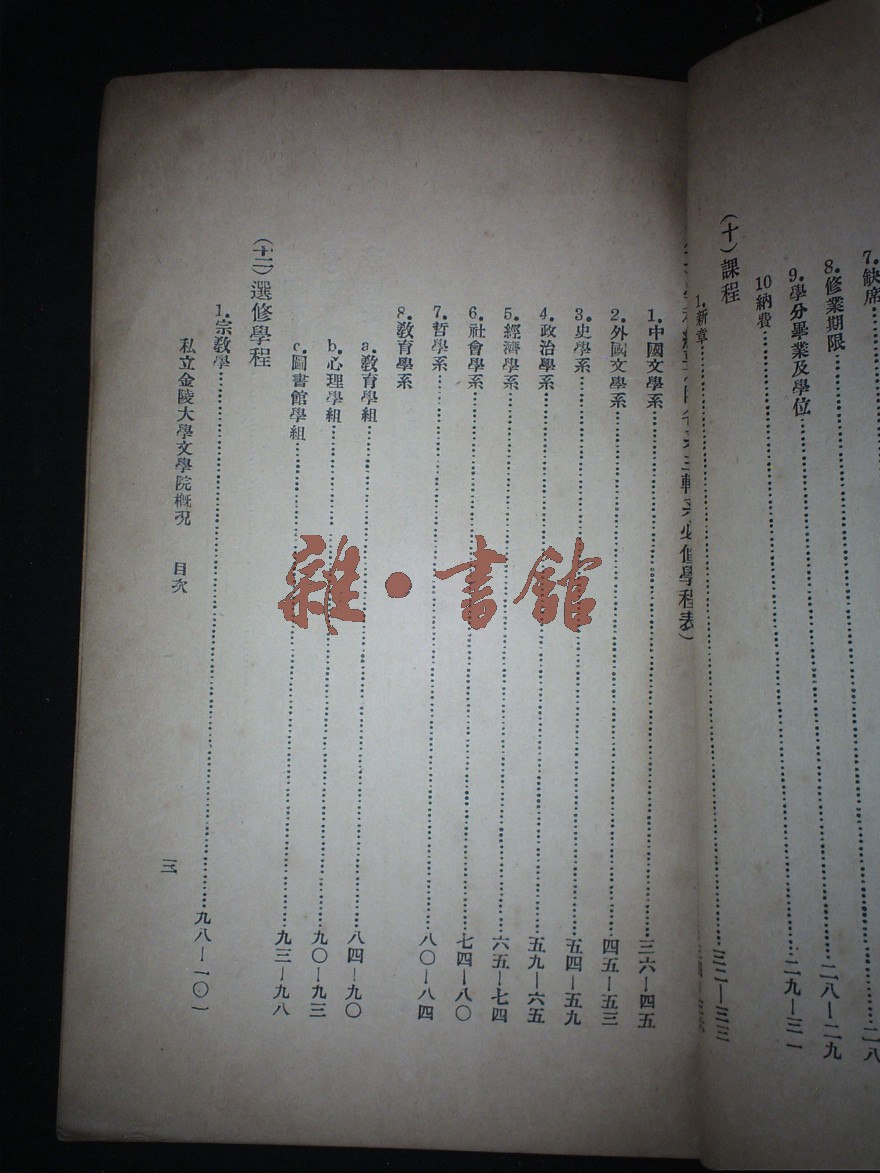 7.缺席……二八
8.修業期限……二八—二九
9.學分畢業及學位……二九—三一
10納費……三二—三三
(十)課程
1.新章
必修學程表)
1.中國文學系……三六—四五
2.外國文學系……四五—五三
3.史學系……五四—五九
4.政治學系……五九—六五
5.經濟學系……六五—七四
6.社會學系……七四—八〇
7.哲學系……八〇—八四
8.教育學系
a.教育學組……八四—九〇
b.心理學組……九〇—九三
c.圖書館學組……九三—九八
(十二)選修學程
1.宗教學……九八—一〇一
私立金陵大學文學院概况 目次
三
雜·書館